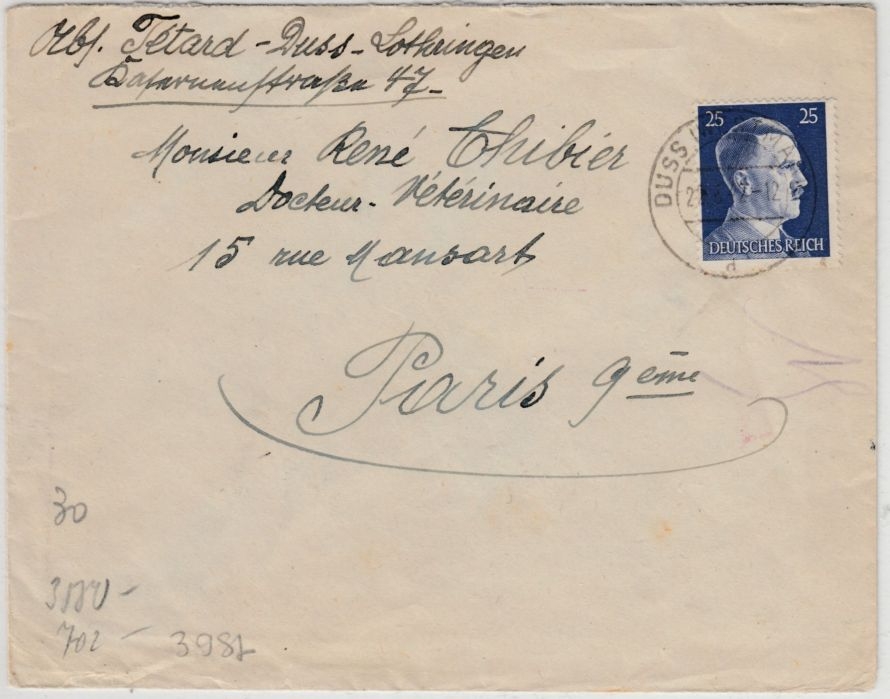 Abs. Tétard - Duss - Lothringen
Kasernenstraße 47 -
25 25
DEUTSCHES REICH
DUSS
d
Monsieur René Thibier
Docteur - Vétérinaire
15 rue Mansart
Paris 9ème
30
702 -
398